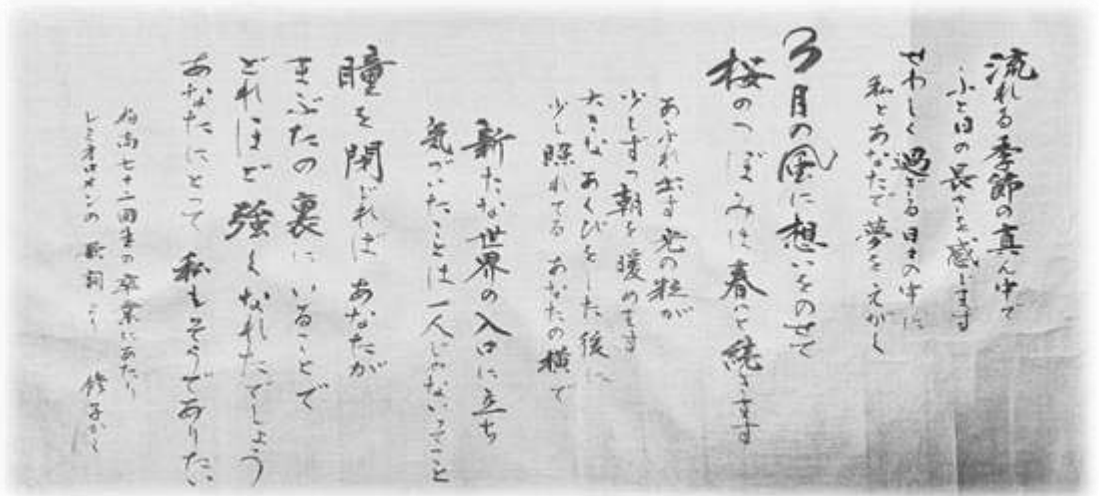 流れる季節の真ん中で
ふと日の長さを感じます
せわしく過ぎる日々の中に
私とあなたで夢をえがく
3月の風に想いをのせて
桜のつぼみは春へと続きます
あふれ出す光の粒が
少しずつ朝を暖めます
大きなあくびをした後に
少し照れてるあなたの横で
新たな世界の入口に立ち
気づいたことは一人じゃないってこと
瞳を閉じれば あなたが
まぶたの裏に いることで
どれほど強くなれたでしょう
あなたにとって私もそうでありたい
高七十二回生の卒業にあたり
レミオロメンの歌詞より